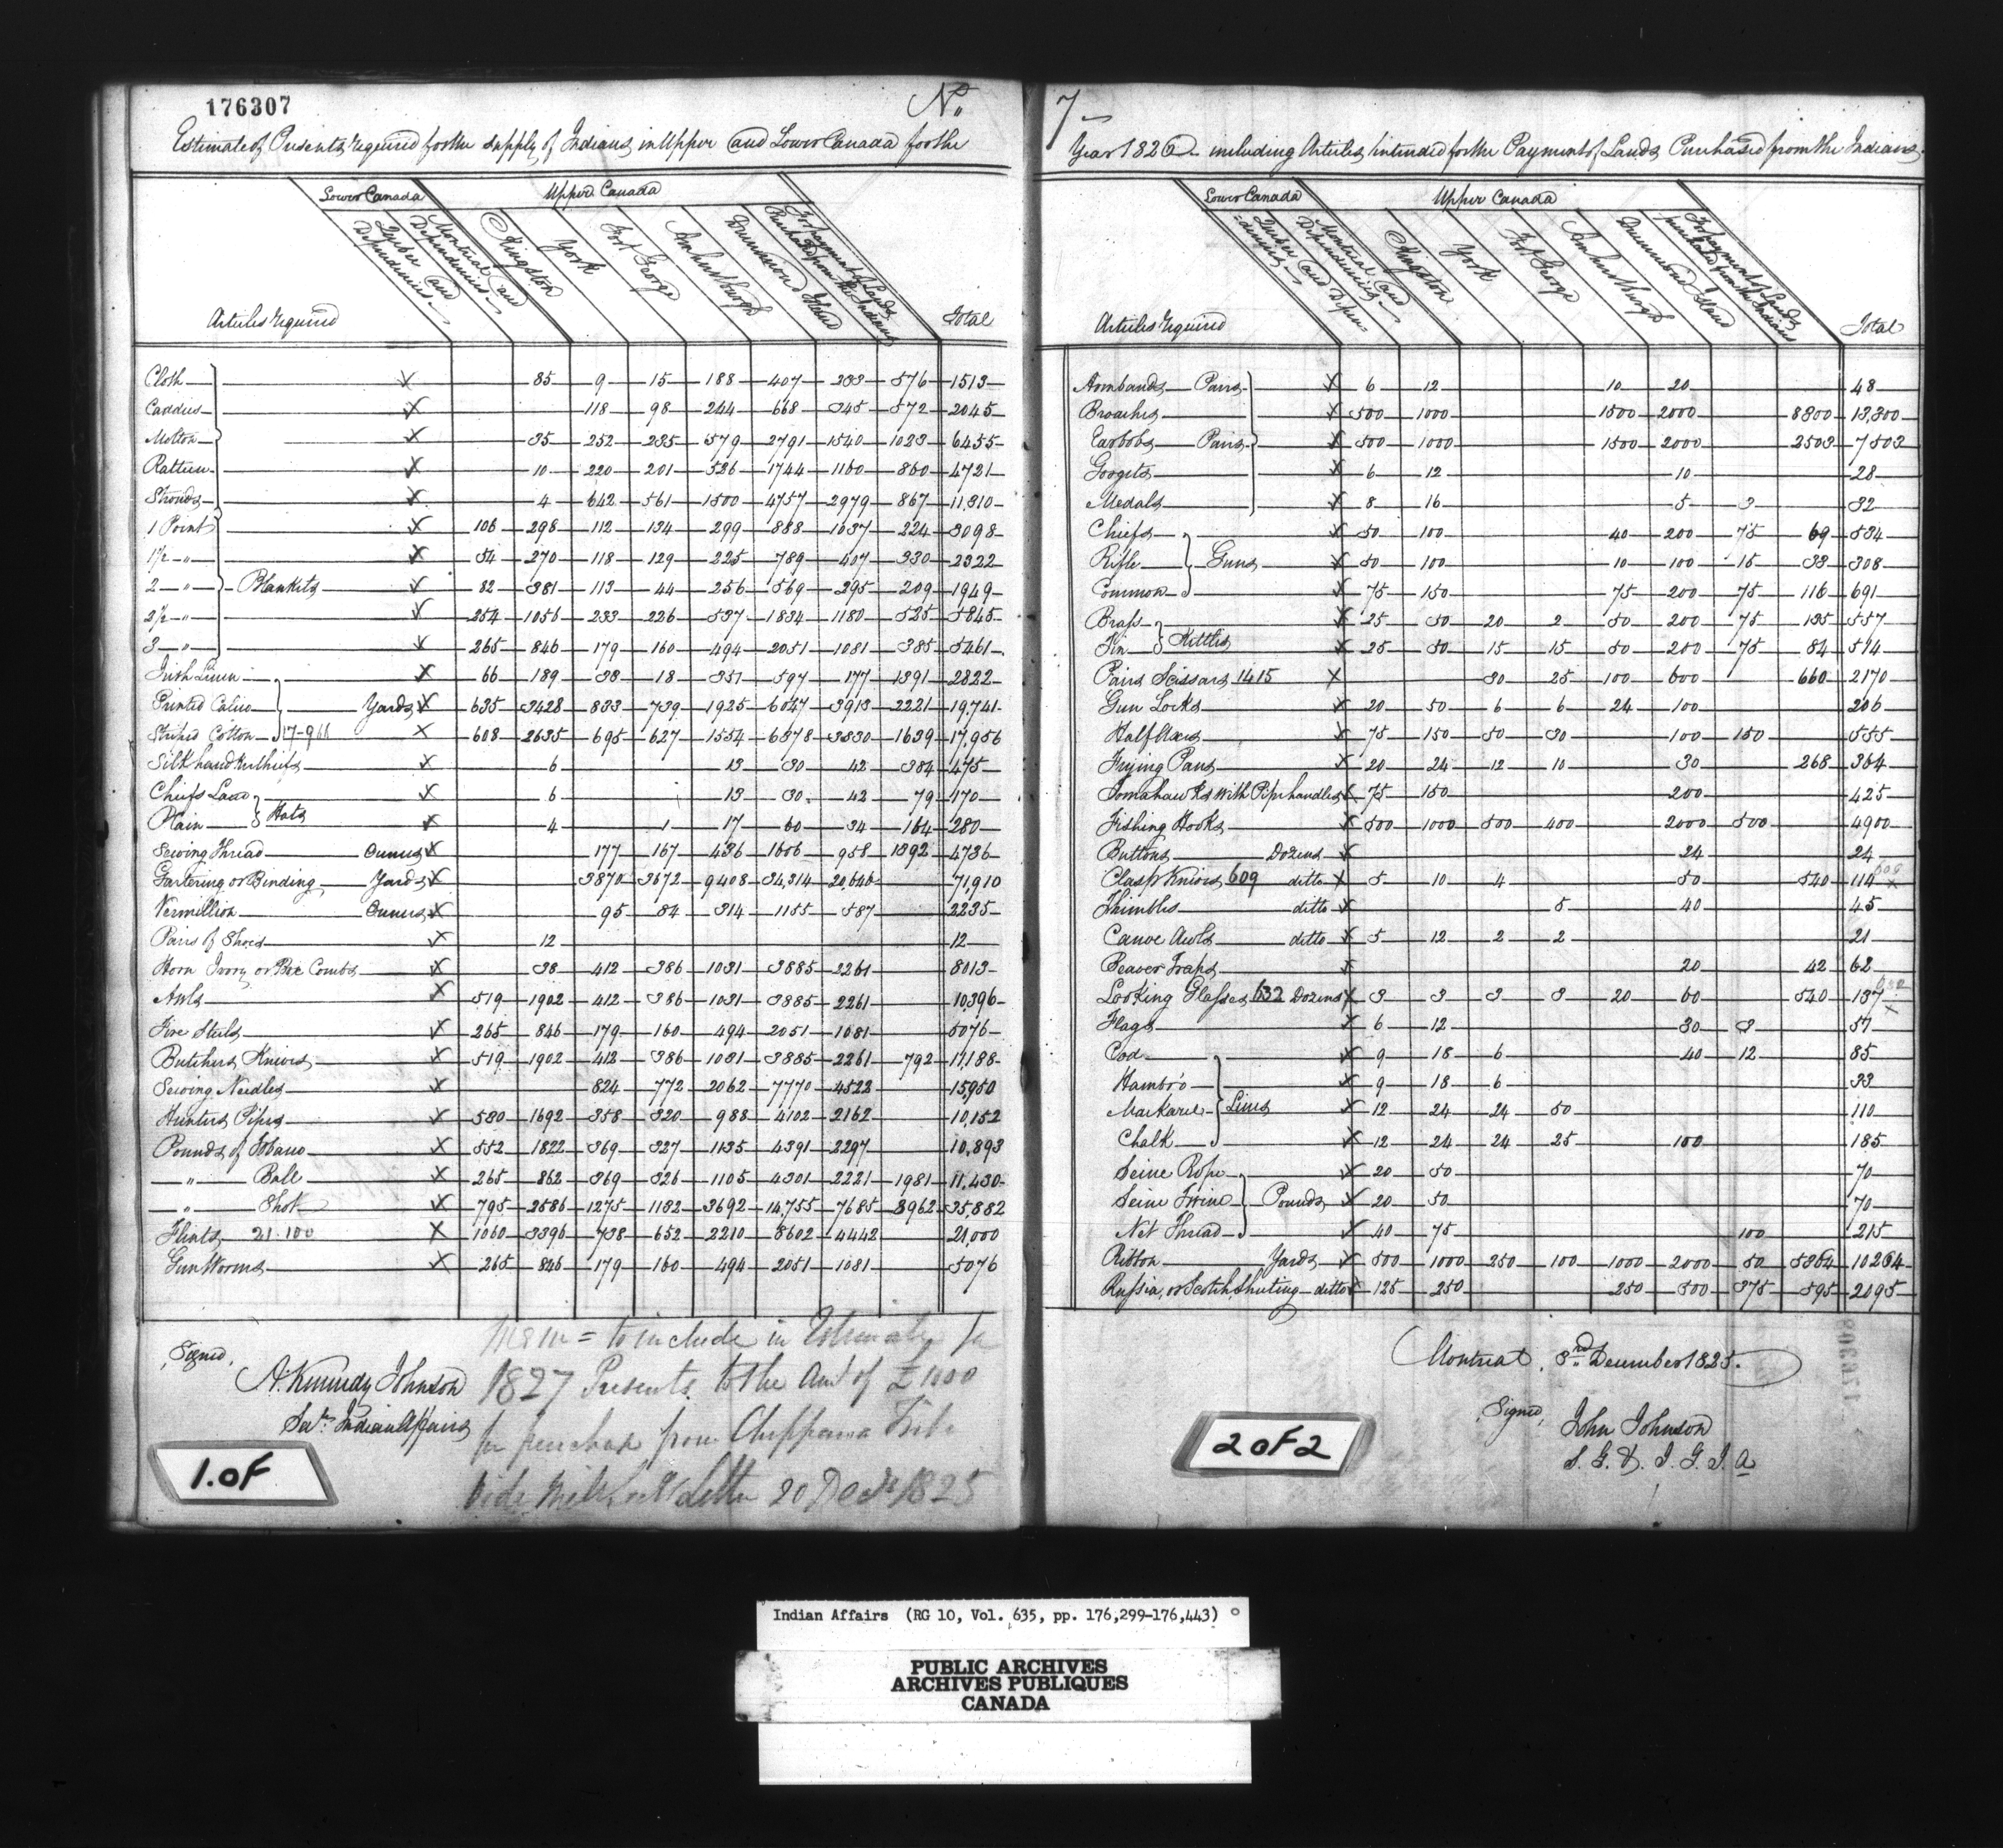 176307
No.
Estimate of Presents required for the supply of Indians in Upper and Lower Canada for the
Lower Canada
Upper Canada
Articles required
Quebec and Dependencies
Montreal and Dependencies
Kingston
York
Fort George
Amherstburgh
Drummond Island
For payment of Lands Purchased from the Indians
Total
Cloth x 85 9 15 188 407 233 576 1513
Caddus x 118 98 244 668 345 572 2045
Molton x 35 252 235 579 2791 1540 1023 6455
Ratteen x 10 220 201 526 1744 1160 860 4721
Strouds x 4 642 561 1500 4757 2979 867 11,310
1 Point x 106 298 112 134 299 888 1037 224 3098
1½ " x 54 270 118 129 225 789 407 330 2322
2 " Blankets x 82 381 113 44 256 569 295 209 1949
2½ " x 254 1056 233 226 537 1834 1180 525 5845
3 " x 265 846 179 160 494 2051 1081 385 5461
Irish Linen x 66 189 38 18 351 597 177 1391 2822
Printed Calico Yards x 635 3428 833 739 1925 6047 3913 2221 19,741
Striped Cotton 17-966 x 608 2635 695 627 1554 6378 3830 1639 17,956
Silk handkerchiefs x 6 13 30 42 384 475
Chiefs Laced x 6 13 30 42 79 170
Plain Hats x 4 1 17 60 34 164 280
Sewing Thread Ounces x 177 167 436 1606 958 1392 4736
Gartering or Binding Yards x 3870 3672 9408 34,314 20,646 71,910
Vermillion Ounces x 95 84 314 1155 587 2235
Pairs of Shoes x 12 12
Horn Ivory or Box Combs x 38 412 386 1031 3885 2261 8013
Awls x 519 1902 412 386 1031 3885 2261 10,396
Fire Steels x 265 846 179 160 494 2051 1081 5076
Butchers Knives x 519 1902 412 386 1031 3885 2261 792 11,188
Sewing Needles x 824 772 2062 7770 4522 15,950
Hunters Pipes x 530 1692 358 320 988 4102 2162 10,152
Pounds of Tobacco x 552 1822 369 327 1135 4391 2297 10,893
" Ball x 265 862 369 326 1105 4301 2221 1981 11,430
" Shot x 795 2586 1275 1132 3692 14,755 7685 3962 35,882
Flints 21.100 x 1060 3396 738 652 2210 8602 4442 21,000
Gun Worms x 265 846 179 160 494 2051 1081 5076
Signed,
A. Kennedy Johnson
Secy. Indian Affairs
Mem = to include in Estimate for
1827 Presents to the Amt of £1100
for purchase from Chippawa Tribe
vide letter 20 Decr 1825
1.OF
7
Year 1826 including Articles intended for the Payment of Lands Purchased from the Indians
Lower Canada
Upper Canada
Articles required
Quebec and Depen=dencies
Montreal and Dependencies
Kingston
York
Fort George
Amherstburgh
Drummond Island
For payment of Lands purchased from the Indians
Total
Armbands Pairs x 6 12 10 20 48
Broaches x 500 1000 1500 2000 8300 13,300
Earbobs Pairs x 500 1000 1500 2000 2503 7503
Gorgets x 6 12 10 28
Medals x 8 16 5 3 32
Chiefs x 50 100 40 200 75 69 534
Rifle Guns x 50 100 10 100 15 33 308
Common x 75 150 75 200 75 116 691
Brass x 25 50 20 2 50 200 75 135 557
Tin Kettles x 25 50 15 15 50 200 75 84 514
Pairs Scissars 1415 x 30 25 100 600 660 2170
Gun Locks x 20 50 6 6 24 100 206
Half Axes x 75 150 50 30 100 150 555
Frying Pans x 20 24 12 10 30 268 364
Tomahawks with Pipe handles x 75 150 200 425
Fishing Hooks x 500 1000 500 400 2000 500 4900
Buttons Dozens x 24 24
Clasp Knives 609 ditto x 5 10 4 50 540 114 609 x
Thimbles ditto x 5 40 45
Canoe Awls ditto x 5 12 2 2 21
Beaver Traps x 20 42 62
Looking Glasses 632 Dozens x 3 3 3 8 20 60 540 137 632 x
Flags x 6 12 30 3 51
Cod x 9 18 6 40 12 85
Hambro x 9 18 6 33
Mackarel Lines x 12 24 24 50 110
Chalk x 12 24 24 25 100 185
Seine Rope x 20 50 70
Seine Twine Pounds x 20 50 70
Net Thread x 40 75 100 215
Ribbon Yards x 500 1000 250 100 1000 2000 50 5364 10264
Russia, or Scotch Sheeting ditto x 125 250 250 500 375 595 2095
Montreal, 3rd December 1825.
Signed,
John Johnson
S. G. & I. G. I. A
176308
2 OF 2
Indian Affairs (RG 10, Vol. 635, pp. 176,299-176,443)
PUBLIC ARCHIVES
ARCHIVES PUBLIQUES
CANADA